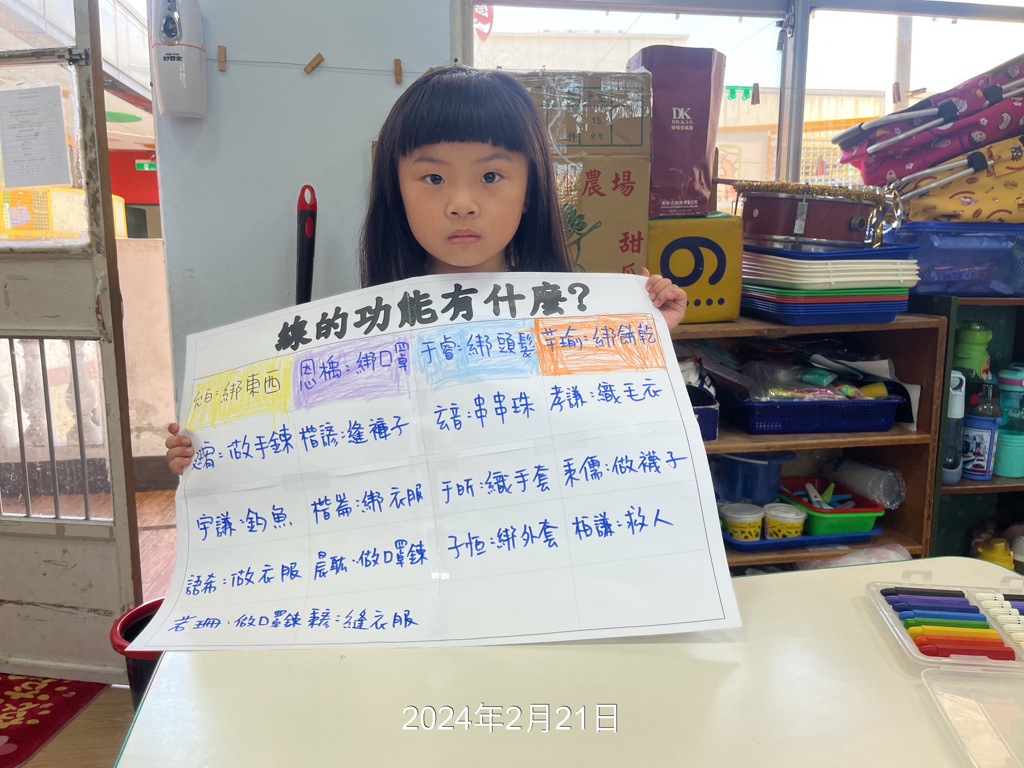 線的功能有什麼?
綁東西
恩橋:綁口罩
于睿:綁頭髮
芊瑜:綁餅乾
做手鍊
楷諺:縫褲子
玄音:串串珠
孝謙:織毛衣
宇謙:釣魚
楷崙:綁衣服
于昕:織手套
秉儒:做襪子
語希:做衣服
晨耘:做口罩鍊
子恒:綁外套
栢謙:救人
若珊:做口罩鍊
縫衣服
農場
甜
DK
DR.KAO
2024年2月21日